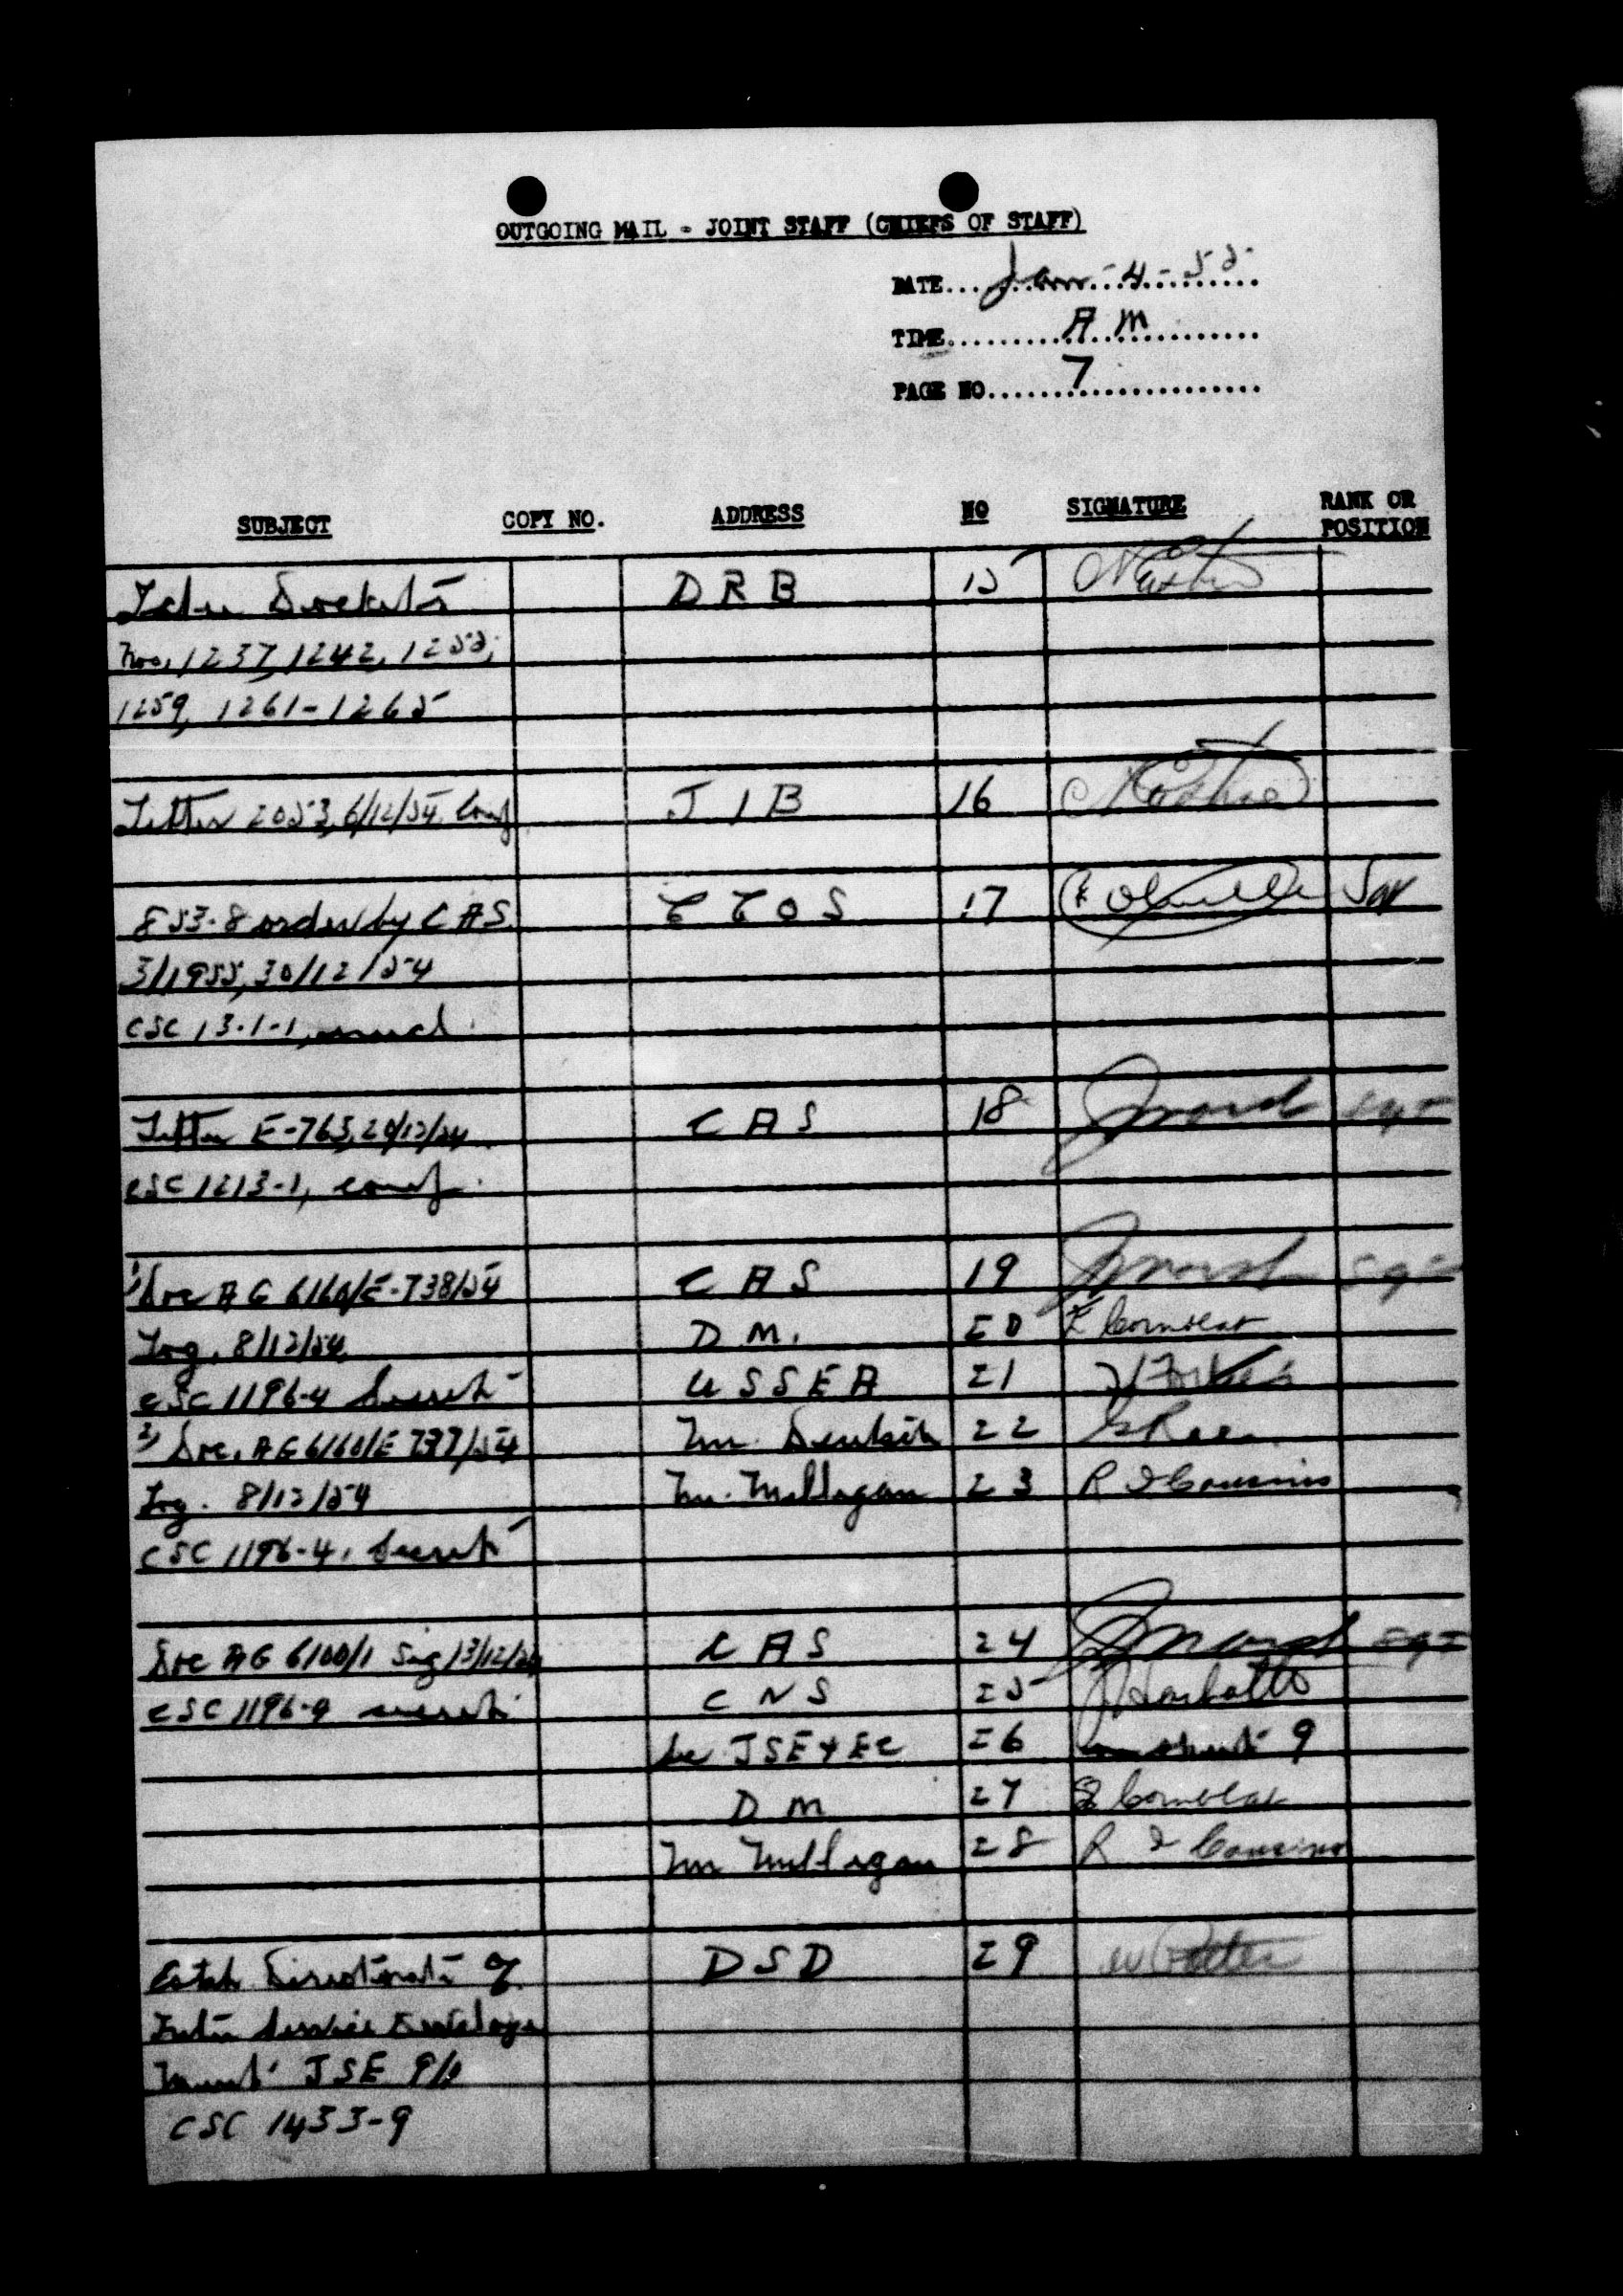 OUTGOING MAIL - JOINT STAFF (CHIEFS OF STAFF)
DATE.... Jan - 4 - 55
TIME.... A M
PAGE NO.... 7
SUBJECT COPY NO. ADDRESS NO SIGNATURE RANK OR POSITION
D R B 15
Nos. 1237, 1242, 1255,
1259, 1261-1265
Letter 2053, 6/12/54. Conf J I B 16
853-8 order by C A S. C C O S 17
3/1955, 30/12/54
CSC 13-1-1,
Letter E-763, 20/12/54 C A S 18 Sgt
CSC 1213-1, conf.
1) Doc A G 6160/E-738/54 C A S 19 Sgt
Log. 8/12/54 D M. 20
CSC 1196-4 Secret U S S E A 21
2) Doc. A G 6160/E 737/54 Mr. 22
Log. 8/12/54 Mr. Milligan 23 R Cousins
CSC 1196-4. Secret
Doc A G 6100/1 Sig 13/12/54 C A S 24 Sgt
CSC 1196-9 secret C N S 25
Sec JSE & EC 26 on sheet 9
D M 27
Mr Milligan 28 R Cousins
Estab. Directorate of D S D 29
Inter Service
JSE 9/1
CSC 1433-9